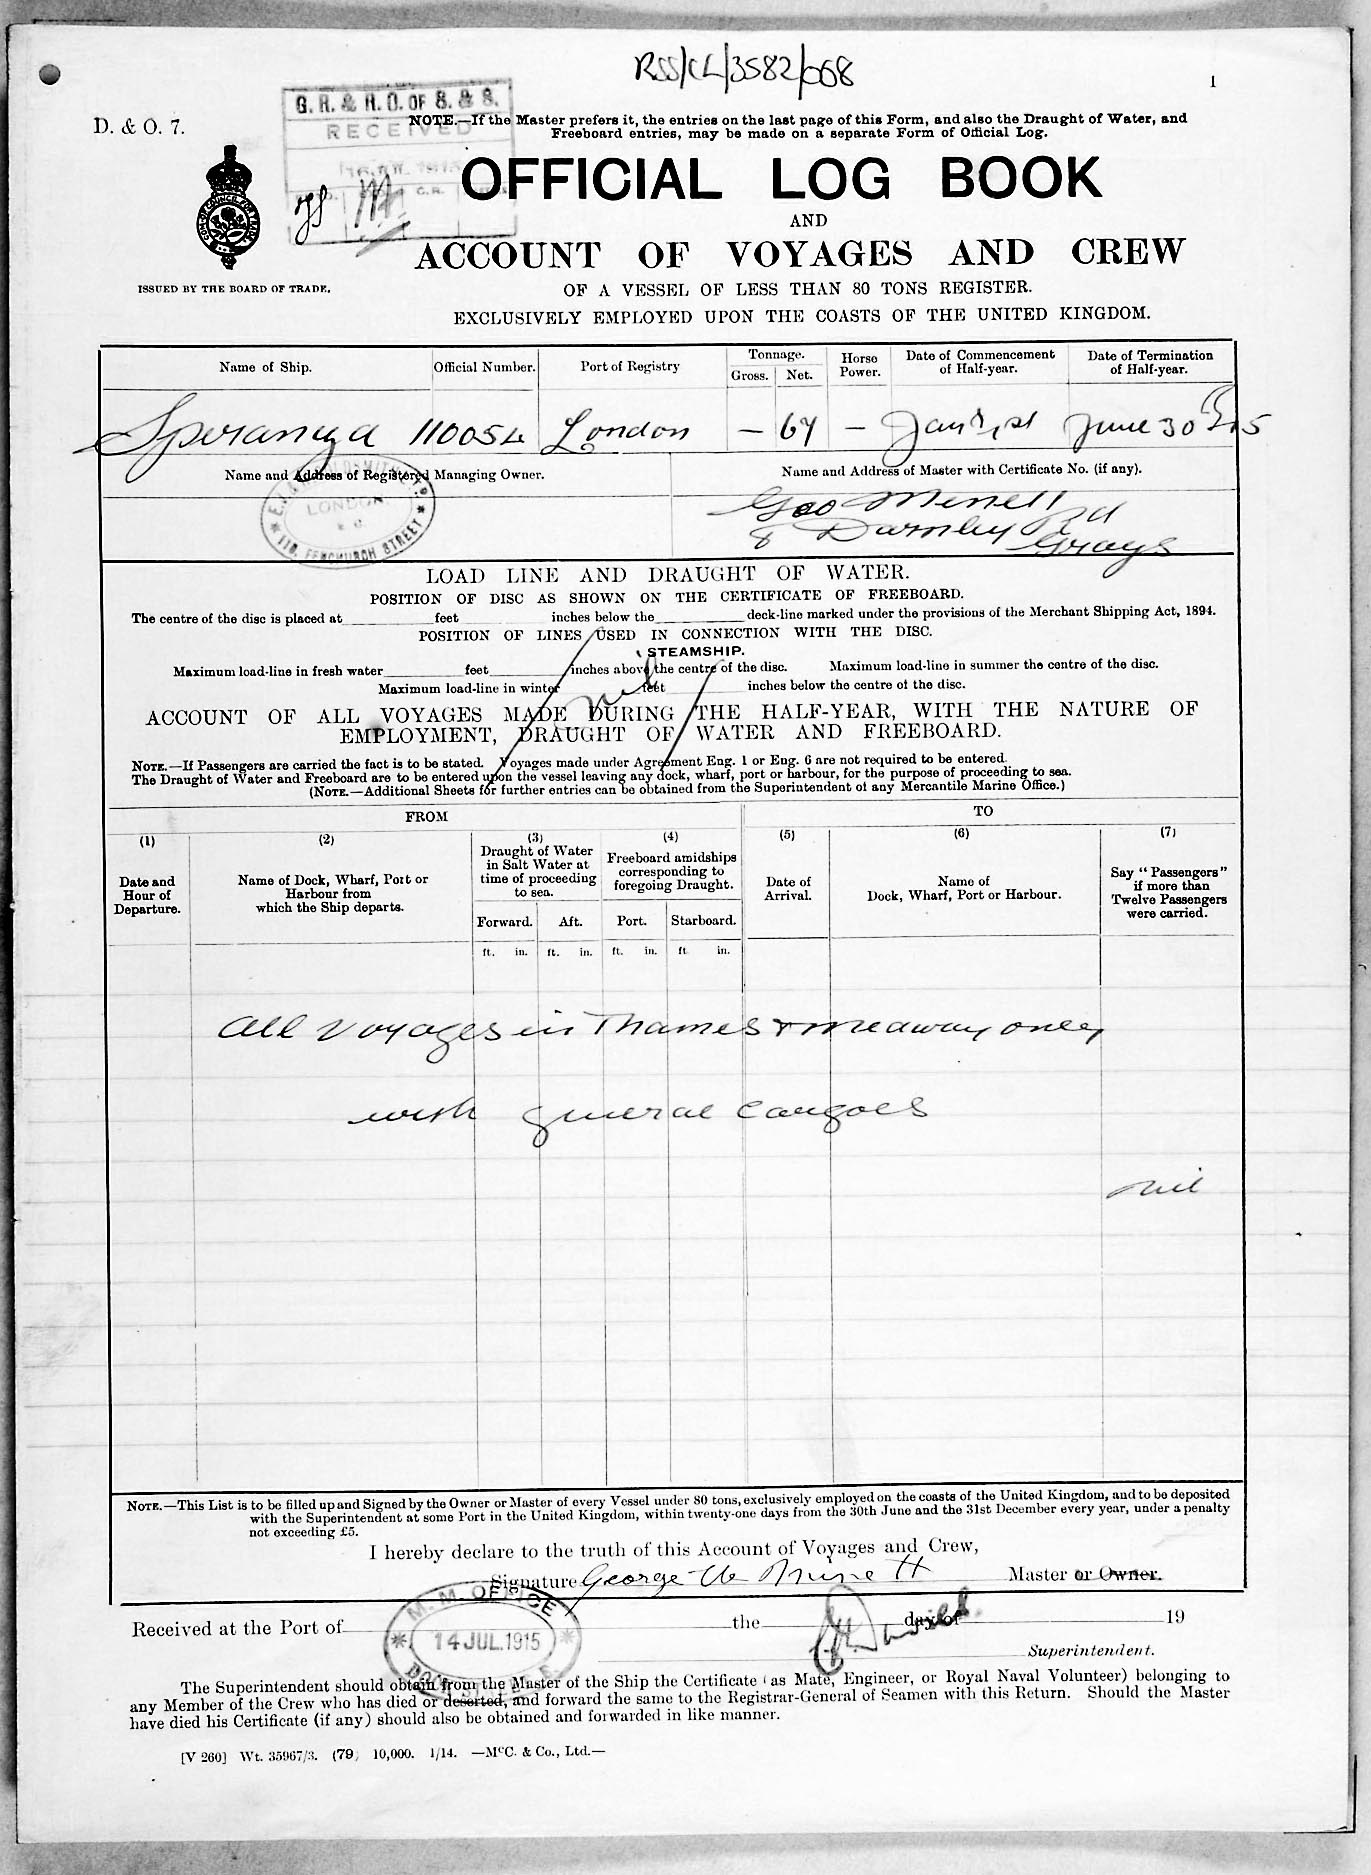 RSS/CL/3582/068
1
D. & O. 7.
G. R. & R. O. OF S. & S.
RECEIVED
NOTE.—If the Master prefers it, the entries on the last page of this Form, and also the Draught of Water, and
Freeboard entries, may be made on a separate Form of Official Log.
OFFICIAL LOG BOOK
AND
ACCOUNT OF VOYAGES AND CREW
ISSUED BY THE BOARD OF TRADE.
OF A VESSEL OF LESS THAN 80 TONS REGISTER.
EXCLUSIVELY EMPLOYED UPON THE COASTS OF THE UNITED KINGDOM.
Name of Ship. Official Number. Port of Registry Tonnage. Gross. Net. Horse Power. Date of Commencement of Half-year. Date of Termination of Half-year.
Speranza 110054 London — 67 — Jany 1st June 30th 15
Name and Address of Registered Managing Owner. Name and Address of Master with Certificate No. (if any).
LONDON
116, FENCHURCH STREET
Geo Minett
8 Darnley Rd
Grays
LOAD LINE AND DRAUGHT OF WATER.
POSITION OF DISC AS SHOWN ON THE CERTIFICATE OF FREEBOARD.
The centre of the disc is placed at feet inches below the deck-line marked under the provisions of the Merchant Shipping Act, 1894.
POSITION OF LINES USED IN CONNECTION WITH THE DISC.
STEAMSHIP.
Maximum load-line in fresh water feet inches above the centre of the disc. Maximum load-line in summer the centre of the disc.
Maximum load-line in winter feet inches below the centre of the disc.
nil
ACCOUNT OF ALL VOYAGES MADE DURING THE HALF-YEAR, WITH THE NATURE OF
EMPLOYMENT, DRAUGHT OF WATER AND FREEBOARD.
NOTE.—If Passengers are carried the fact is to be stated. Voyages made under Agreement Eng. 1 or Eng. 6 are not required to be entered.
The Draught of Water and Freeboard are to be entered upon the vessel leaving any dock, wharf, port or harbour, for the purpose of proceeding to sea.
(NOTE.—Additional Sheets for further entries can be obtained from the Superintendent of any Mercantile Marine Office.)
FROM TO
(1) (2) (3) (4) (5) (6) (7)
Date and Hour of Departure.
Name of Dock, Wharf, Port or Harbour from which the Ship departs.
Draught of Water in Salt Water at time of proceeding to sea.
Freeboard amidships corresponding to foregoing Draught.
Date of Arrival.
Name of Dock, Wharf, Port or Harbour.
Say "Passengers" if more than Twelve Passengers were carried.
Forward. Aft. Port. Starboard.
ft. in. ft. in. ft. in. ft in.
All Voyages in Thames & Medway only
with general Cargoes
nil
NOTE.—This List is to be filled up and Signed by the Owner or Master of every Vessel under 80 tons, exclusively employed on the coasts of the United Kingdom, and to be deposited
with the Superintendent at some Port in the United Kingdom, within twenty-one days from the 30th June and the 31st December every year, under a penalty
not exceeding £5.
I hereby declare to the truth of this Account of Voyages and Crew,
Signature George Minett Master or Owner.
Received at the Port of the day of 19
M. M. OFFICE
14 JUL.1915
Superintendent.
The Superintendent should obtain from the Master of the Ship the Certificate (as Mate, Engineer, or Royal Naval Volunteer) belonging to
any Member of the Crew who has died or deserted, and forward the same to the Registrar-General of Seamen with this Return. Should the Master
have died his Certificate (if any) should also be obtained and forwarded in like manner.
[V 260] Wt. 35967/3. (79) 10,000. 1/14. —McC. & Co., Ltd.—